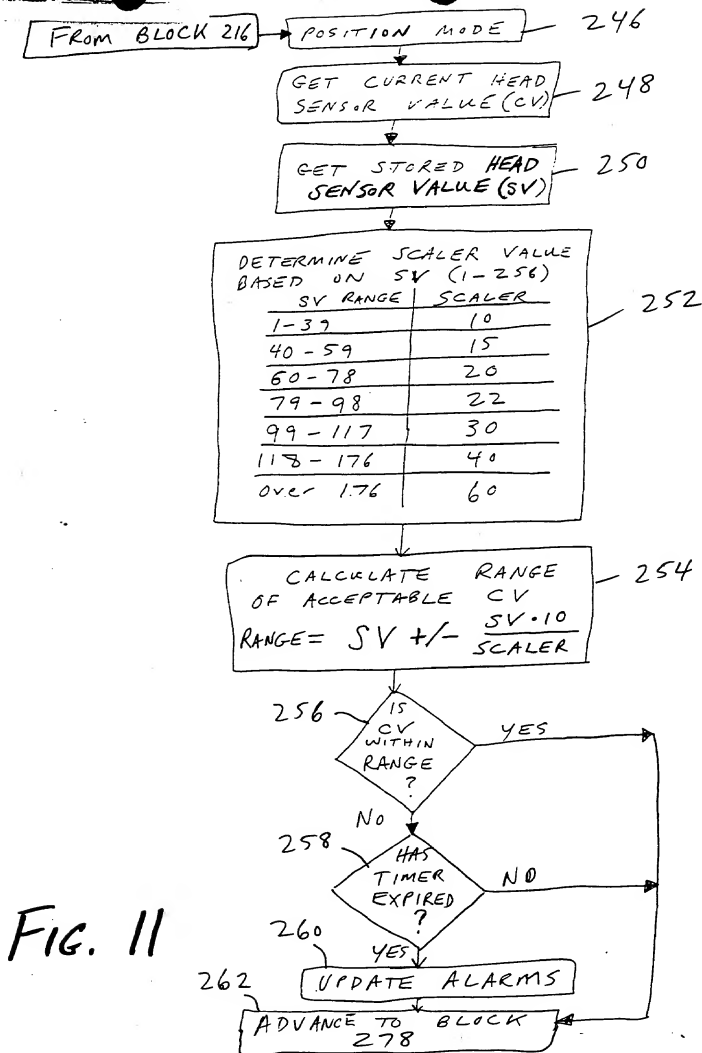 FROM BLOCK 216
POSITION MODE
246
GET CURRENT HEAD
SENSOR VALUE (CV)
248
GET STORED HEAD
SENSOR VALUE (SV)
250
DETERMINE SCALER VALUE
BASED ON SV (1-256)
SV RANGE SCALER
1-39 10
40-59 15
60-78 20
79-98 22
99-117 30
118-176 40
over 176 60
252
CALCULATE RANGE
OF ACCEPTABLE CV
RANGE = SV +/- SV·10
SCALER
254
256
IS
CV
WITHIN
RANGE
?
YES
NO
258
HAS
TIMER
EXPIRED
?
NO
YES
260
UPDATE ALARMS
262
ADVANCE TO BLOCK
278
FIG. 11